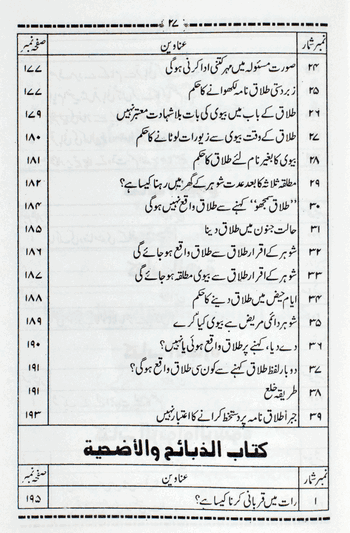 ۲۷
نمبر شمار عناوین صفحہ نمبر
۲۴ صورت مسئولہ میں مہر کتنی ادا کرنی ہوگی ۱۷۷
۲۵ زبردستی طلاق نامہ لکھوانے کا حکم ۱۷۷
۲۶ طلاق کے باب میں بیوی کی بات بلا شہادت معتبر نہیں ۱۷۹
۲۷ طلاق کے وقت بیوی سے زیورات لوٹانے کا حکم ۱۸۰
۲۸ بیوی کا بغیر نام لئے طلاق کا حکم ۱۸۱
۲۹ مطلقہ ثلاثہ کا بعد عدت شوہر کے گھر میں رہنا کیسا ہے؟ ۱۸۲
۳۰ ’’طلاق سمجھو‘‘ کہنے سے طلاق واقع نہیں ہوگی ۱۸۴
۳۱ حالت جنون میں طلاق دینا ۱۸۵
۳۲ شوہر کے اقرار طلاق سے طلاق واقع ہو جائے گی ۱۸۶
۳۳ شوہر کے اقرار طلاق سے بیوی مطلقہ ہو جائے گی ۱۸۷
۳۴ ایام حیض میں طلاق دینے کا حکم ۱۸۸
۳۵ شوہر دائمی مریض ہے بیوی کیا کرے ۱۸۹
۳۶ دے دیا، کہنے پر طلاق واقع ہوئی یا نہیں؟ ۱۹۰
۳۷ دو بار لفظ طلاق کہنے سے کون سی طلاق واقع ہوگی؟ ۱۹۱
۳۸ طریقہ خلع ۱۹۱
۳۹ جبراً طلاق نامہ پر دستخط کرانے کا اعتبار نہیں ۱۹۳
کتاب الذبائح والأضحیة
نمبر شمار عناوین صفحہ نمبر
۱ رات میں قربانی کرنا کیسا ہے؟ ۱۹۵